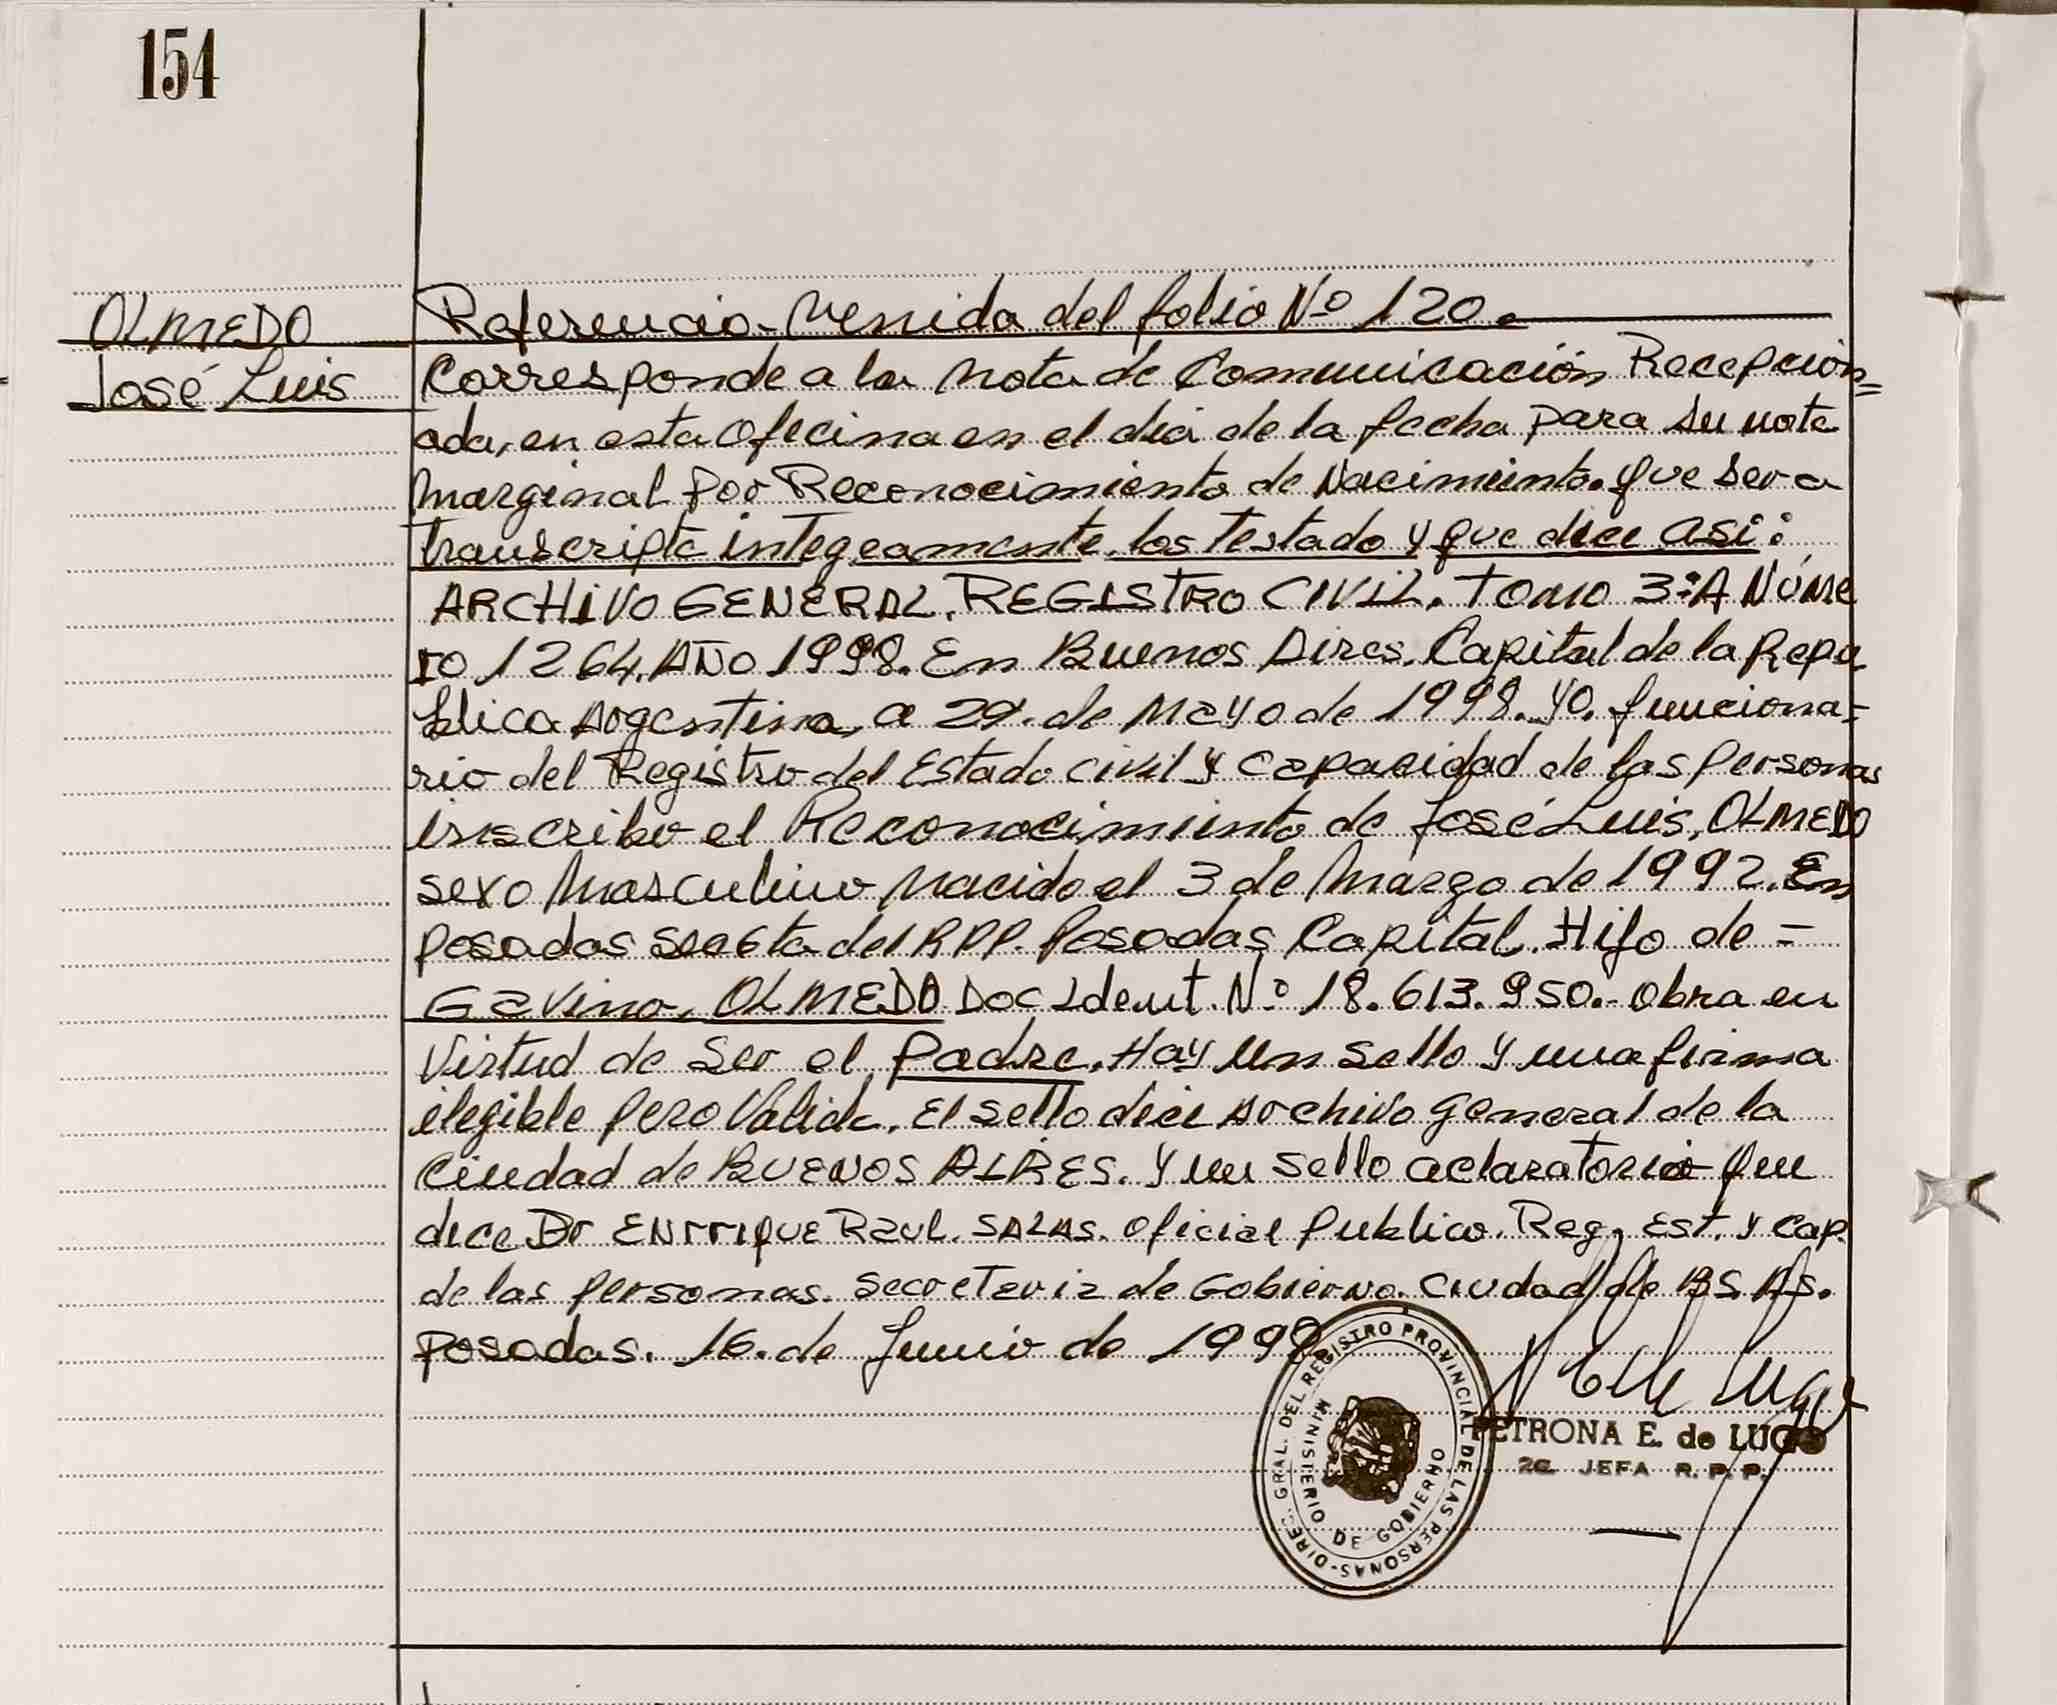 154
OLMEDO
José Luis
Referencia. Venida del folio Nº 120.
Corresponde a la Nota de Comunicación Recepcion=
ada, en esta Oficina en el dia de la fecha para su nota
Marginal por Reconocimiento de Nacimiento. que sera
transcripta integramente. los testado y que dice asi:
ARCHIVO GENERAL. REGISTRO CIVIL. TOMO 3ºA NÚME
ro 1264. AÑO 1998. En Buenos Aires. Capital de la Repu
blica Argentina, a 29. de Mayo de 1998. yo. funciona-
rio del Registro del Estado civil y capacidad de las personas
inscribo el Reconocimiento de José Luis, OLMEDO
sexo Masculino Nacido el 3 de Marzo de 1992. En
posadas Sec 6ta del RPP. Posadas Capital. Hijo de =
Gavino. OLMEDO Doc Ident. Nº 18.613.950.- obra en
Virtud de Ser el Padre. Hay un sello y una firma
ilegible pero Valida. El sello dice Archivo general de la
Ciudad de BUENOS AIRES. y un sello aclaratorio que
dice Dr ENrrique Raul. SALAS. Oficial Publico. Reg. Est. y Cap.
de las personas. Secretaria de Gobierno. Ciudad de BS. AS.
Posadas. 16. de Junio de 1998
DIREC. GRAL. DEL REGISTRO PROVINCIAL DE LAS PERSONAS-
MINISTERIO DE GOBIERNO
PETRONA E. de LUGO
2a JEFA R. P. P.